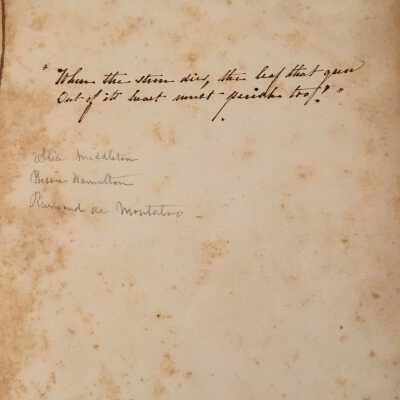 "When the stem dies, the leaf that grew
Out of its heart must perish too!"
Middleton
Bessie Hamilton
de